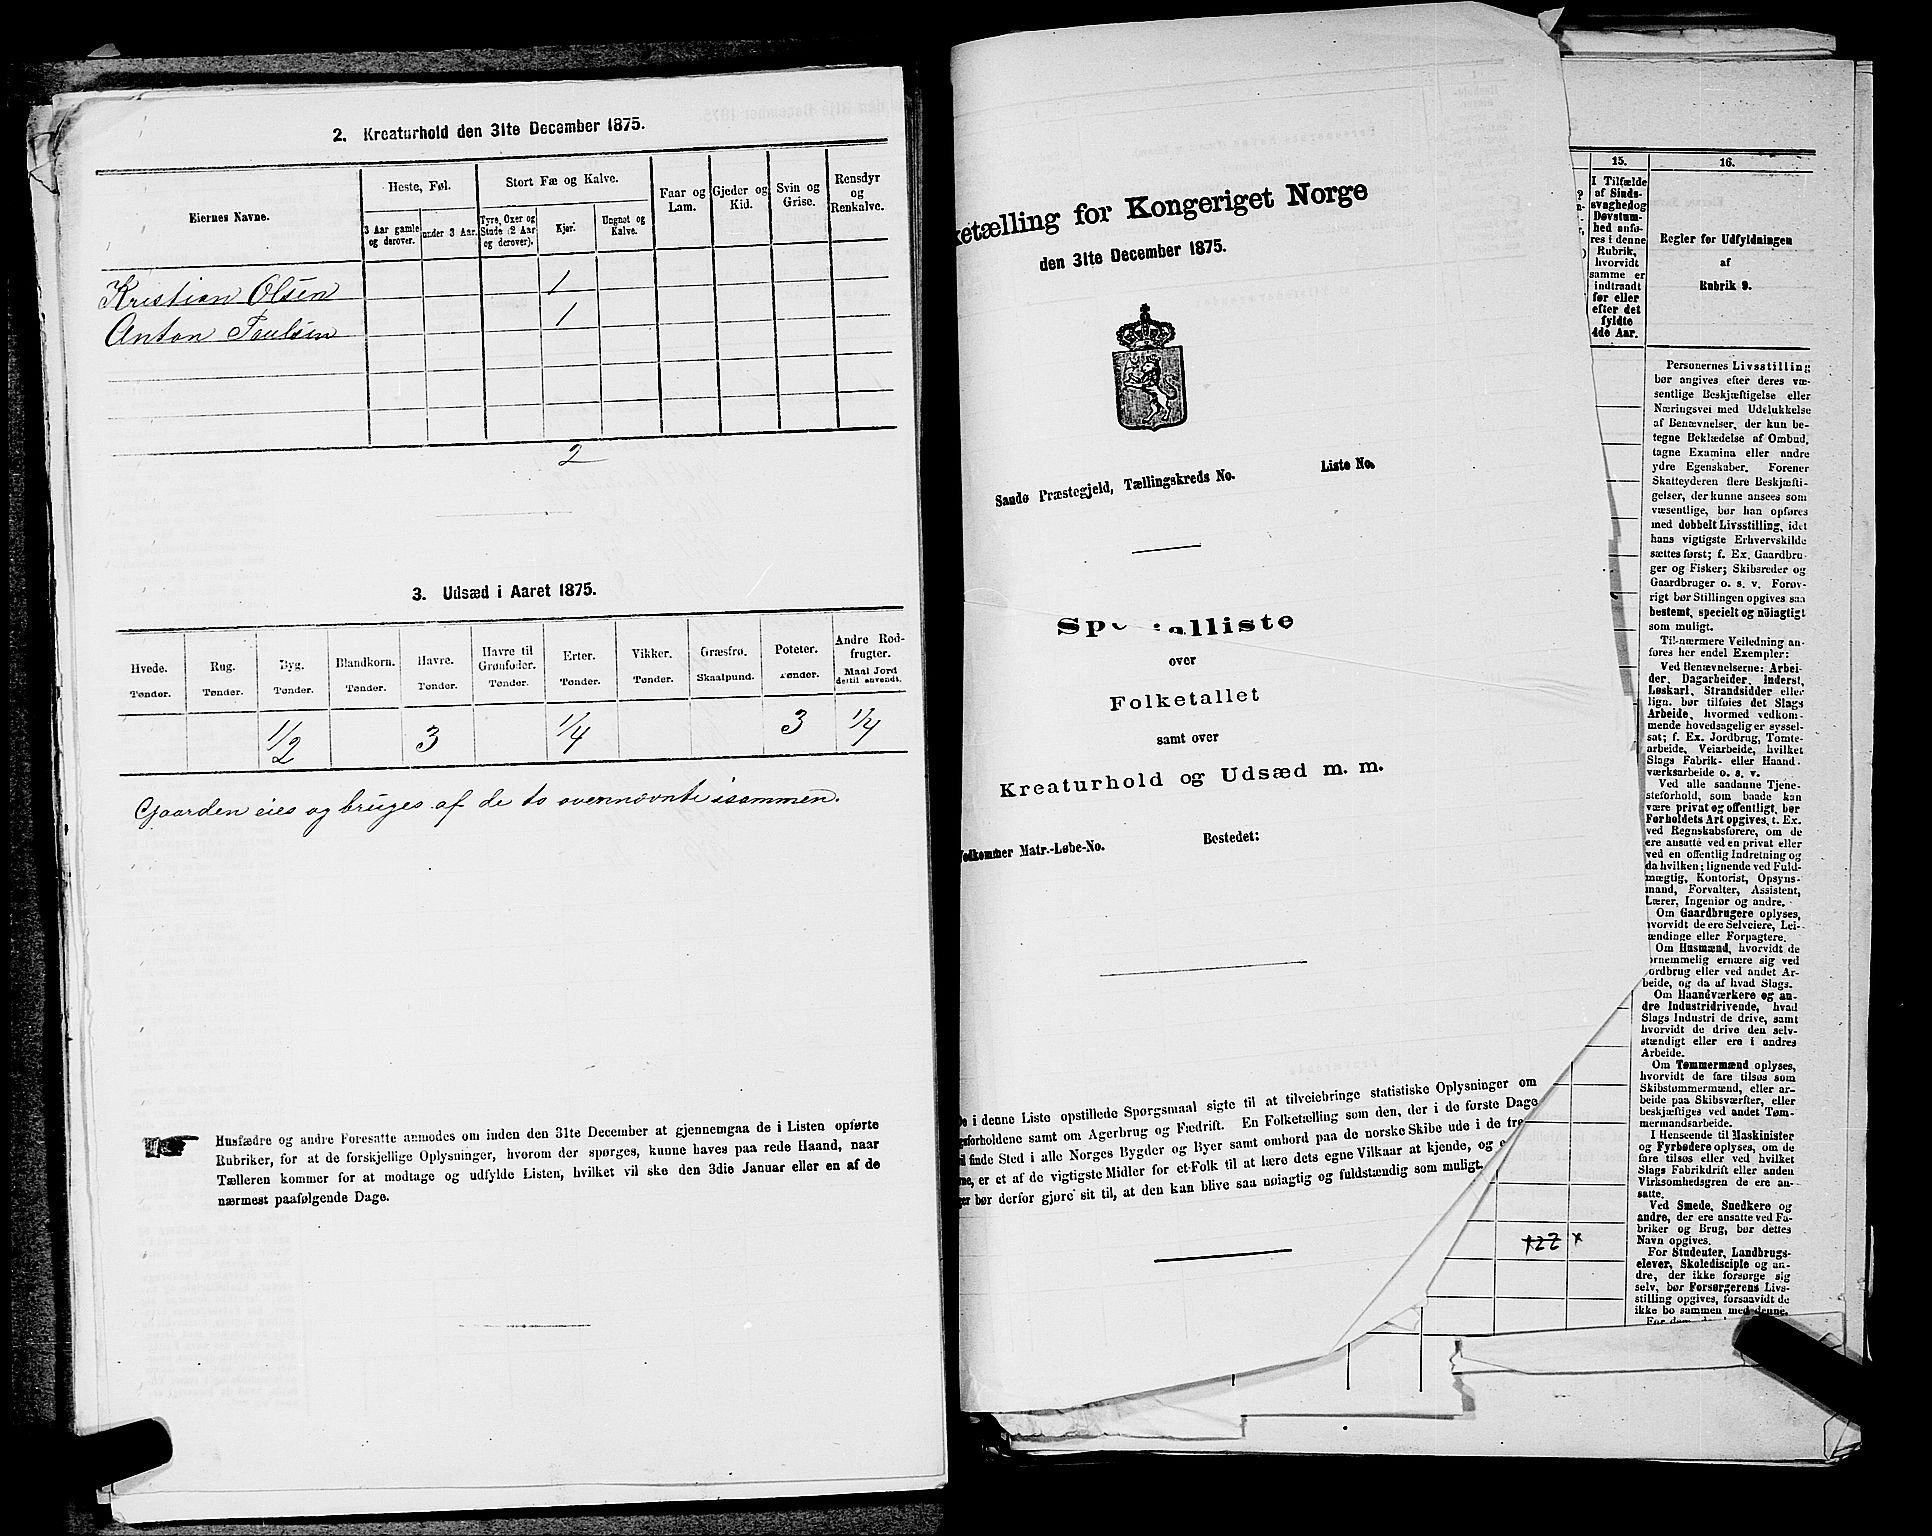 2. Kreaturhold den 31te December 1875.
Eiernes Navne.
Heste, Føl.
Stort Fæ og Kalve.
Faar og Lam.
Gjeder og Kid.
Svin og Grise.
Rensdyr og Renkalve.
3 Aar gamle og derover.
under 3 Aar.
Tyre, Oxer og Stude (2 Aar og derover).
Kjør.
Ungnøt og Kalve.
Kristian Olsen 1
Anton Paulsen 1
2
3. Udsæd i Aaret 1875.
Hvede. Tønder.
Rug. Tønder.
Byg. Tønder.
Blandkorn. Tønder.
Havre. Tønder.
Havre til Grønfoder. Tønder.
Erter. Tønder.
Vikker. Tønder.
Græsfrø. Skaalpund.
Poteter. Tønder.
Andre Rodfrugter. Maal Jord dertil anvendt.
1/2 3 1/4 3 1/4
Gaarden eies og bruges af de to ovennævnte isammen.
Husfædre og andre Foresatte anmodes om inden den 31te December at gjennemgaa de i Listen opførte
Rubriker, for at de forskjellige Oplysninger, hvorom der spørges, kunne haves paa rede Haand, naar
Tælleren kommer for at modtage og udfylde Listen, hvilket vil ske den 3die Januar eller en af de
nærmest paafølgende Dage.
ketælling for Kongeriget Norge
den 31te December 1875.
Sandø Præstegjeld, Tællingskreds No. Liste No.
Sp alliste
over
Folketallet
samt over
Kreaturhold og Udsæd m. m.
Vedkommer Matr.-Løbe-No. Bostedet:
De i denne Liste opstillede Spørgsmaal sigte til at tilveiebringe statistiske Oplysninger om
gsforholdene samt om Agerbrug og Fædrift. En Folketælling som den, der i de første Dage
il finde Sted i alle Norges Bygder og Byer samt ombord paa de norske Skibe ude i de fre
ne, er et af de vigtigste Midler for et Folk til at lære dets egne Vilkaar at kjende, og e
ger bør derfor gjøre sit til, at den kan blive saa nøiagtig og fuldstændig som muligt.
127 x
15.
I Tilfælde
af Sinds-
svaghed og
Døvstum-
hed anfø-
res i denne
Rubrik,
hvorvidt
samme er
indtraadt
før eller
efter det
fyldte
dde Aar.
16.
Regler for Udfyldningen
af
Rubrik 9.
Personernes Livsstilling
bør angives efter deres væ-
sentlige Beskjæftigelse eller
Næringsvei med Udelukkelse
af Benævnelser, der kun be-
tegne Beklædelse af Ombud,
tagne Examina eller andre
ydre Egenskaber. Forener
Skatteyderen flere Beskjæfti-
gelser, der kunne ansees som
væsentlige, bør han opføres
med dobbelt Livsstilling, idet
hans vigtigste Erhvervskilde
sættes først; f. Ex. Gaardbru-
ger og Fisker; Skibsreder og
Gaardbruger o. s. v. Forøv-
rigt bør Stillingen opgives saa
bestemt, specielt og nøiagtigt
som muligt.
Til nærmere Veiledning an-
føres her endel Exempler:
Ved Benævnelserne: Arbei-
der, Dagarbeider, Inderst,
Løskarl, Strandsidder eller
lign. bør tilføies det Slags
Arbeide, hvormed vedkom-
mende hovedsagelig er syssel-
sat; f. Ex. Jordbrug, Tomte-
arbeide, Veiarbeide, hvilket
Slags Fabrik- eller Haand-
værksarbeide o. s. v.
Ved alle saadanne Tjene-
steforhold, som baade kan
være privat og offentligt, bør
Forholdets Art opgives, t. Ex.
ved Regnskabsførere, om de
ere ansatte ved en privat eller
ved en offentlig Indretning og
da hvilken; lignende ved Fuld-
mægtig, Kontorist, Opsyns-
mand, Forvalter, Assistent,
Lærer, Ingeniør og andre.
Om Gaardbrugere oplyses,
hvorvidt de ere Selveiere, Lei-
lændinge eller Forpagtere.
Om Husmænd, hvorvidt de
ornemmelig ernære sig ved
ordbrug eller ved andet Ar-
beide, og da af hvad Slags.
Om Haandværkere og an-
dre Industridrivende, hvad
Slags Industri de drive, samt
hvorvidt de drive den selv-
stændigt eller ere i andres
Arbeide.
Om Tømmermænd oplyses,
hvorvidt de fare tilsøs som
Skibstømmermænd, eller ar-
beide paa Skibsværfter, eller
beskjæftiges ved andet Tøm-
mermandsarbeide.
I Henseende til Maskinister
og Fyrbødere oplyses, om de
fare tilsøs eller ved hvilket
Slags Fabrikdrift eller anden
Virksomhedsgren de ere an-
satte.
Ved Smede, Snedkere og
andre, der ere ansatte ved Fa-
briker og Brug, bør dettes
Navn opgives.
For Studenter, Landbrugs-
elever, Skoledisciple og an-
dre, der ikke forsørge sig
selv, bør Forsørgerens Livs-
stilling opgives, forsaavidt de
ikke bo sammen med denne.